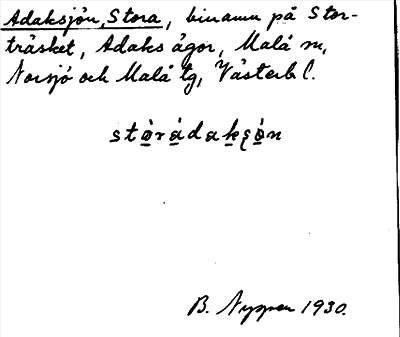 Adaksjön, Stora, binamn på Stor-
träsket, Adaks ägor, Malå sn,
Norsjö och Malå tg, Västerb. l.
stò̱rá̱daḵʂò̱n
B. Nyppen 1930.